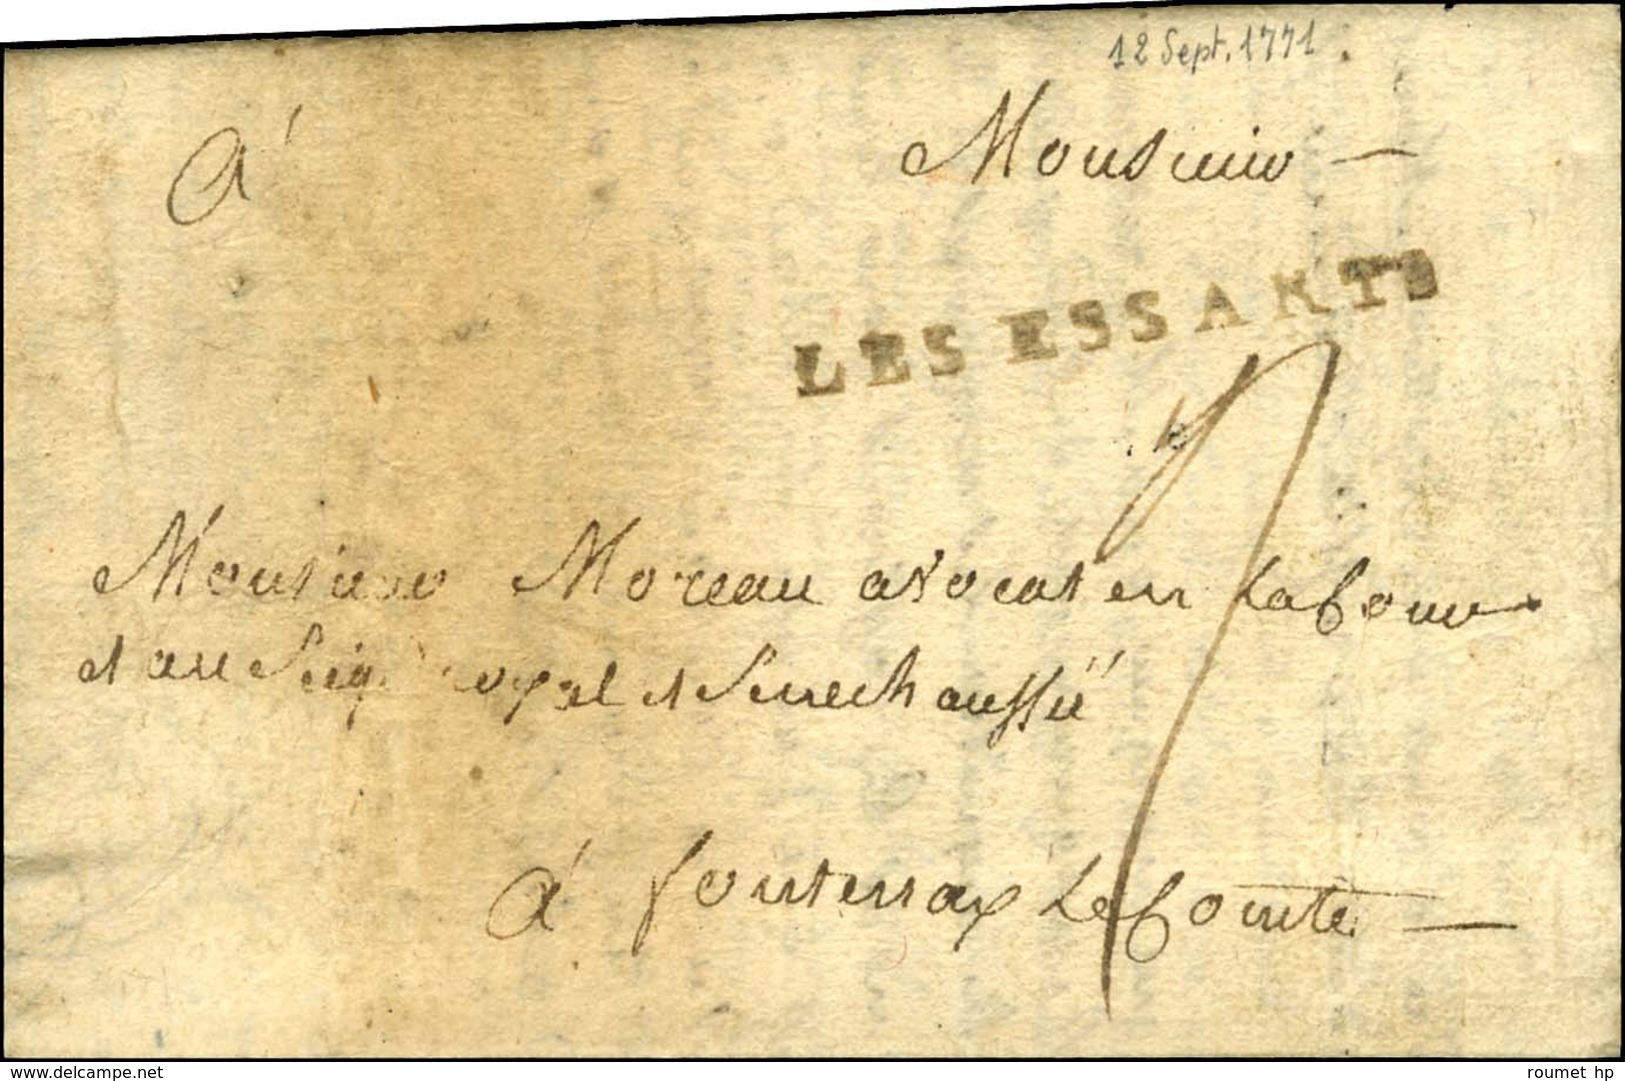 12 Sept. 1771
A'
Monsieur
LES ESSARTS
7
Monsieur Moreau avocat en La Cour
et au Siege royal et Senechaussée
A' fontenay Le Comte
delcampe.net
roumet hp